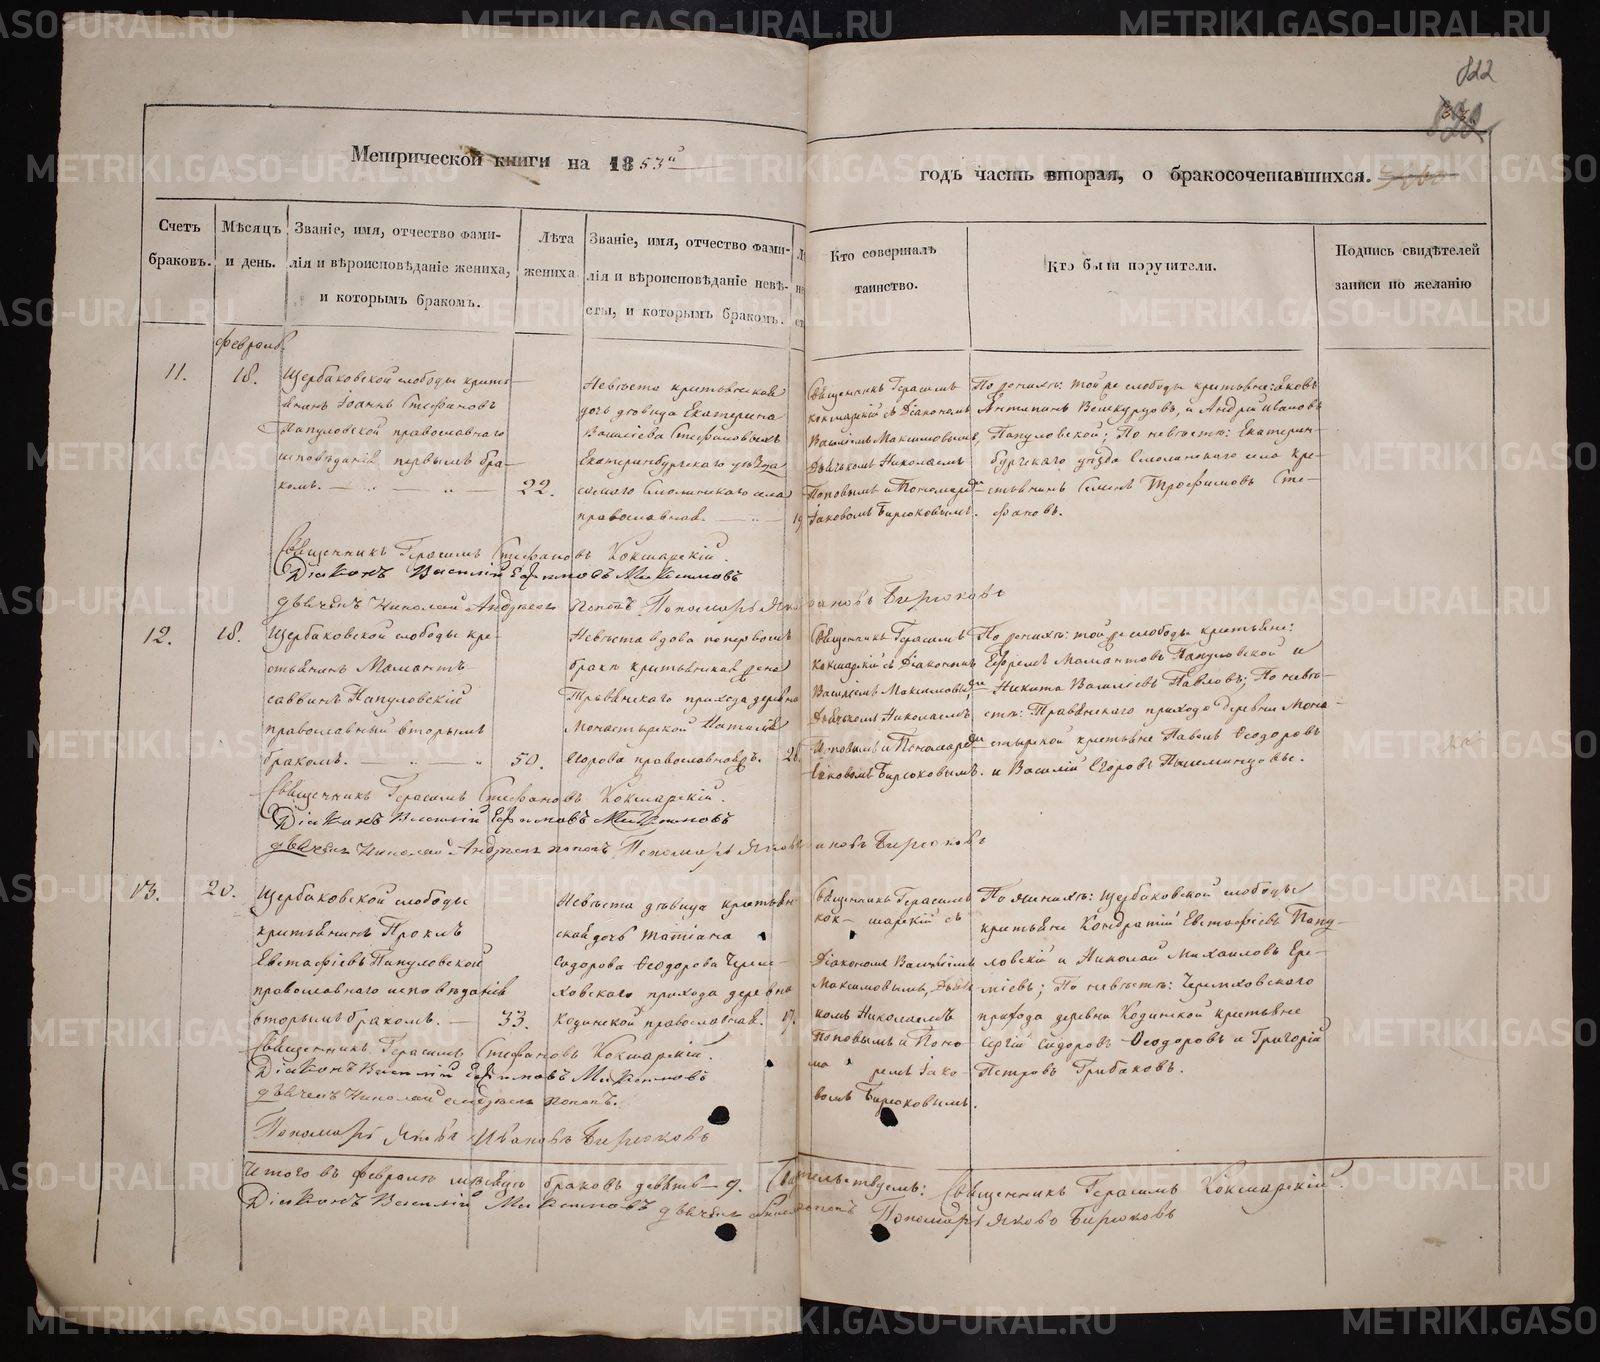 822
Метрической книги на 1853й
годъ часть вторая, о бракосочетавшихся.
Счетъ браковъ.
Мѣсяцъ и день.
Званіе, имя, отчество фами-
лія и вѣроисповѣданіе жениха,
и которымъ бракомъ.
Лѣта
жениха
Званіе, имя, отчество фами-
лія и вѣроисповѣданіе невѣ-
сты, и которымъ бракомъ.
Кто совершалъ
таинство.
Кто были поручители.
Подпись свидѣтелей
записи по желанію
Февраль
11.
18.
Щербаковской слободы кресть-
янинъ Іоаннъ Стефановъ
Папуловской православнаго
исповѣданія первымъ бра-
комъ.
22.
Невѣста крестьянская
дочь дѣвица Екатерина
Василіева Стефановыхъ
Екатеринбургскаго уѣзда
Смолинскаго села
православная.
19
Священникъ Герасимъ
Кокшарскій съ Діакономъ
Василіемъ Максимовымъ,
Дьячкомъ Николаемъ
Поповымъ и Пономаремъ
Іаковомъ Бирюковымъ.
По женихѣ: той же слободы крестьяне: Іаковъ
Антипинъ и Андрей Ивановъ
Папуловской; По невѣстѣ: Екатерин-
бургскаго уѣзда Смолинскаго села кре-
стьянинъ Семенъ Трофимовъ Сте-
фановъ.
Священникъ Герасимъ Стефановъ Кокшарскій.
Діаконъ Василій Ефимовъ Максимовъ
Дьячекъ Николай Андреевъ Поповъ Пономарь Яковъ Ивановъ Бирюковъ
12.
18.
Щербаковской слободы кре-
стьянинъ Мамантъ
Саввинъ Папуловскій
православный вторымъ
бракомъ.
50.
Невѣста вдова по первомъ
бракѣ крестьянская жена
Травянскаго прихода деревни
Монастырской Наталія
Егорова православнаяжъ.
28.
Священникъ Герасимъ
Кокшарскій съ Діакономъ
Василіемъ Максимовымъ
Дьячкомъ Николаемъ
Поповымъ и Пономаремъ
Іаковомъ Бирюковымъ.
По женихѣ: той же слободы крестьяне:
Ефремъ Мамантовъ Папуловской и
Никита Василіевъ Павловъ; По невѣ-
стѣ: Травянскаго прихода деревни Мона-
стырской крестьяне Павелъ Ѳеодоровъ
и Василій Егоровъ
Священникъ Герасимъ Стефановъ Кокшарскій.
Діаконъ Василій Ефимовъ Максимовъ
Дьячекъ Николай Андреевъ Поповъ Пономарь Яковъ Ивановъ Бирюковъ
13.
20.
Щербаковской слободы
крестьянинъ Проклъ
Евстафіевъ Папуловской
православнаго исповѣданія
вторымъ бракомъ.
33.
Невѣста дѣвица крестьян-
ская дочь Татіана
Сидорова Ѳеодорова Черем-
ховскаго прихода деревни
Кодинской православная.
17.
Священникъ Герасимъ
Кок- шарскій съ
Діакономъ Василіемъ
Максимовымъ, Дьяч-
комъ Николаемъ
Поповымъ и Поно-
ма ремъ Іако-
вомъ Бирюковымъ.
По женихѣ: Щербаковской слободы
крестьяне Кондратій Евстафіевъ Папу-
ловскій и Николай Михаиловъ Ере-
міевъ; По невѣстѣ: Черемховскаго
прихода деревни Кодинской крестьяне
Сергій Сидоровъ Ѳеодоровъ и Григорій
Петровъ Грибаковъ.
Священникъ Герасимъ Стефановъ Кокшарскій.
Діаконъ Василій Ефимовъ Максимовъ
Дьячекъ Николай Андреевъ Поповъ.
Пономарь Яковъ Ивановъ Бирюковъ
Итого въ февралѣ мѣсяцѣ браковъ девять 9. Свидѣтельствуемъ: Священникъ Герасимъ Кокшарскій
Діаконъ Василій Максимовъ Дьячекъ Николай Поповъ Пономарь Яковъ Бирюковъ
METRIKI.GASO-URAL.RU